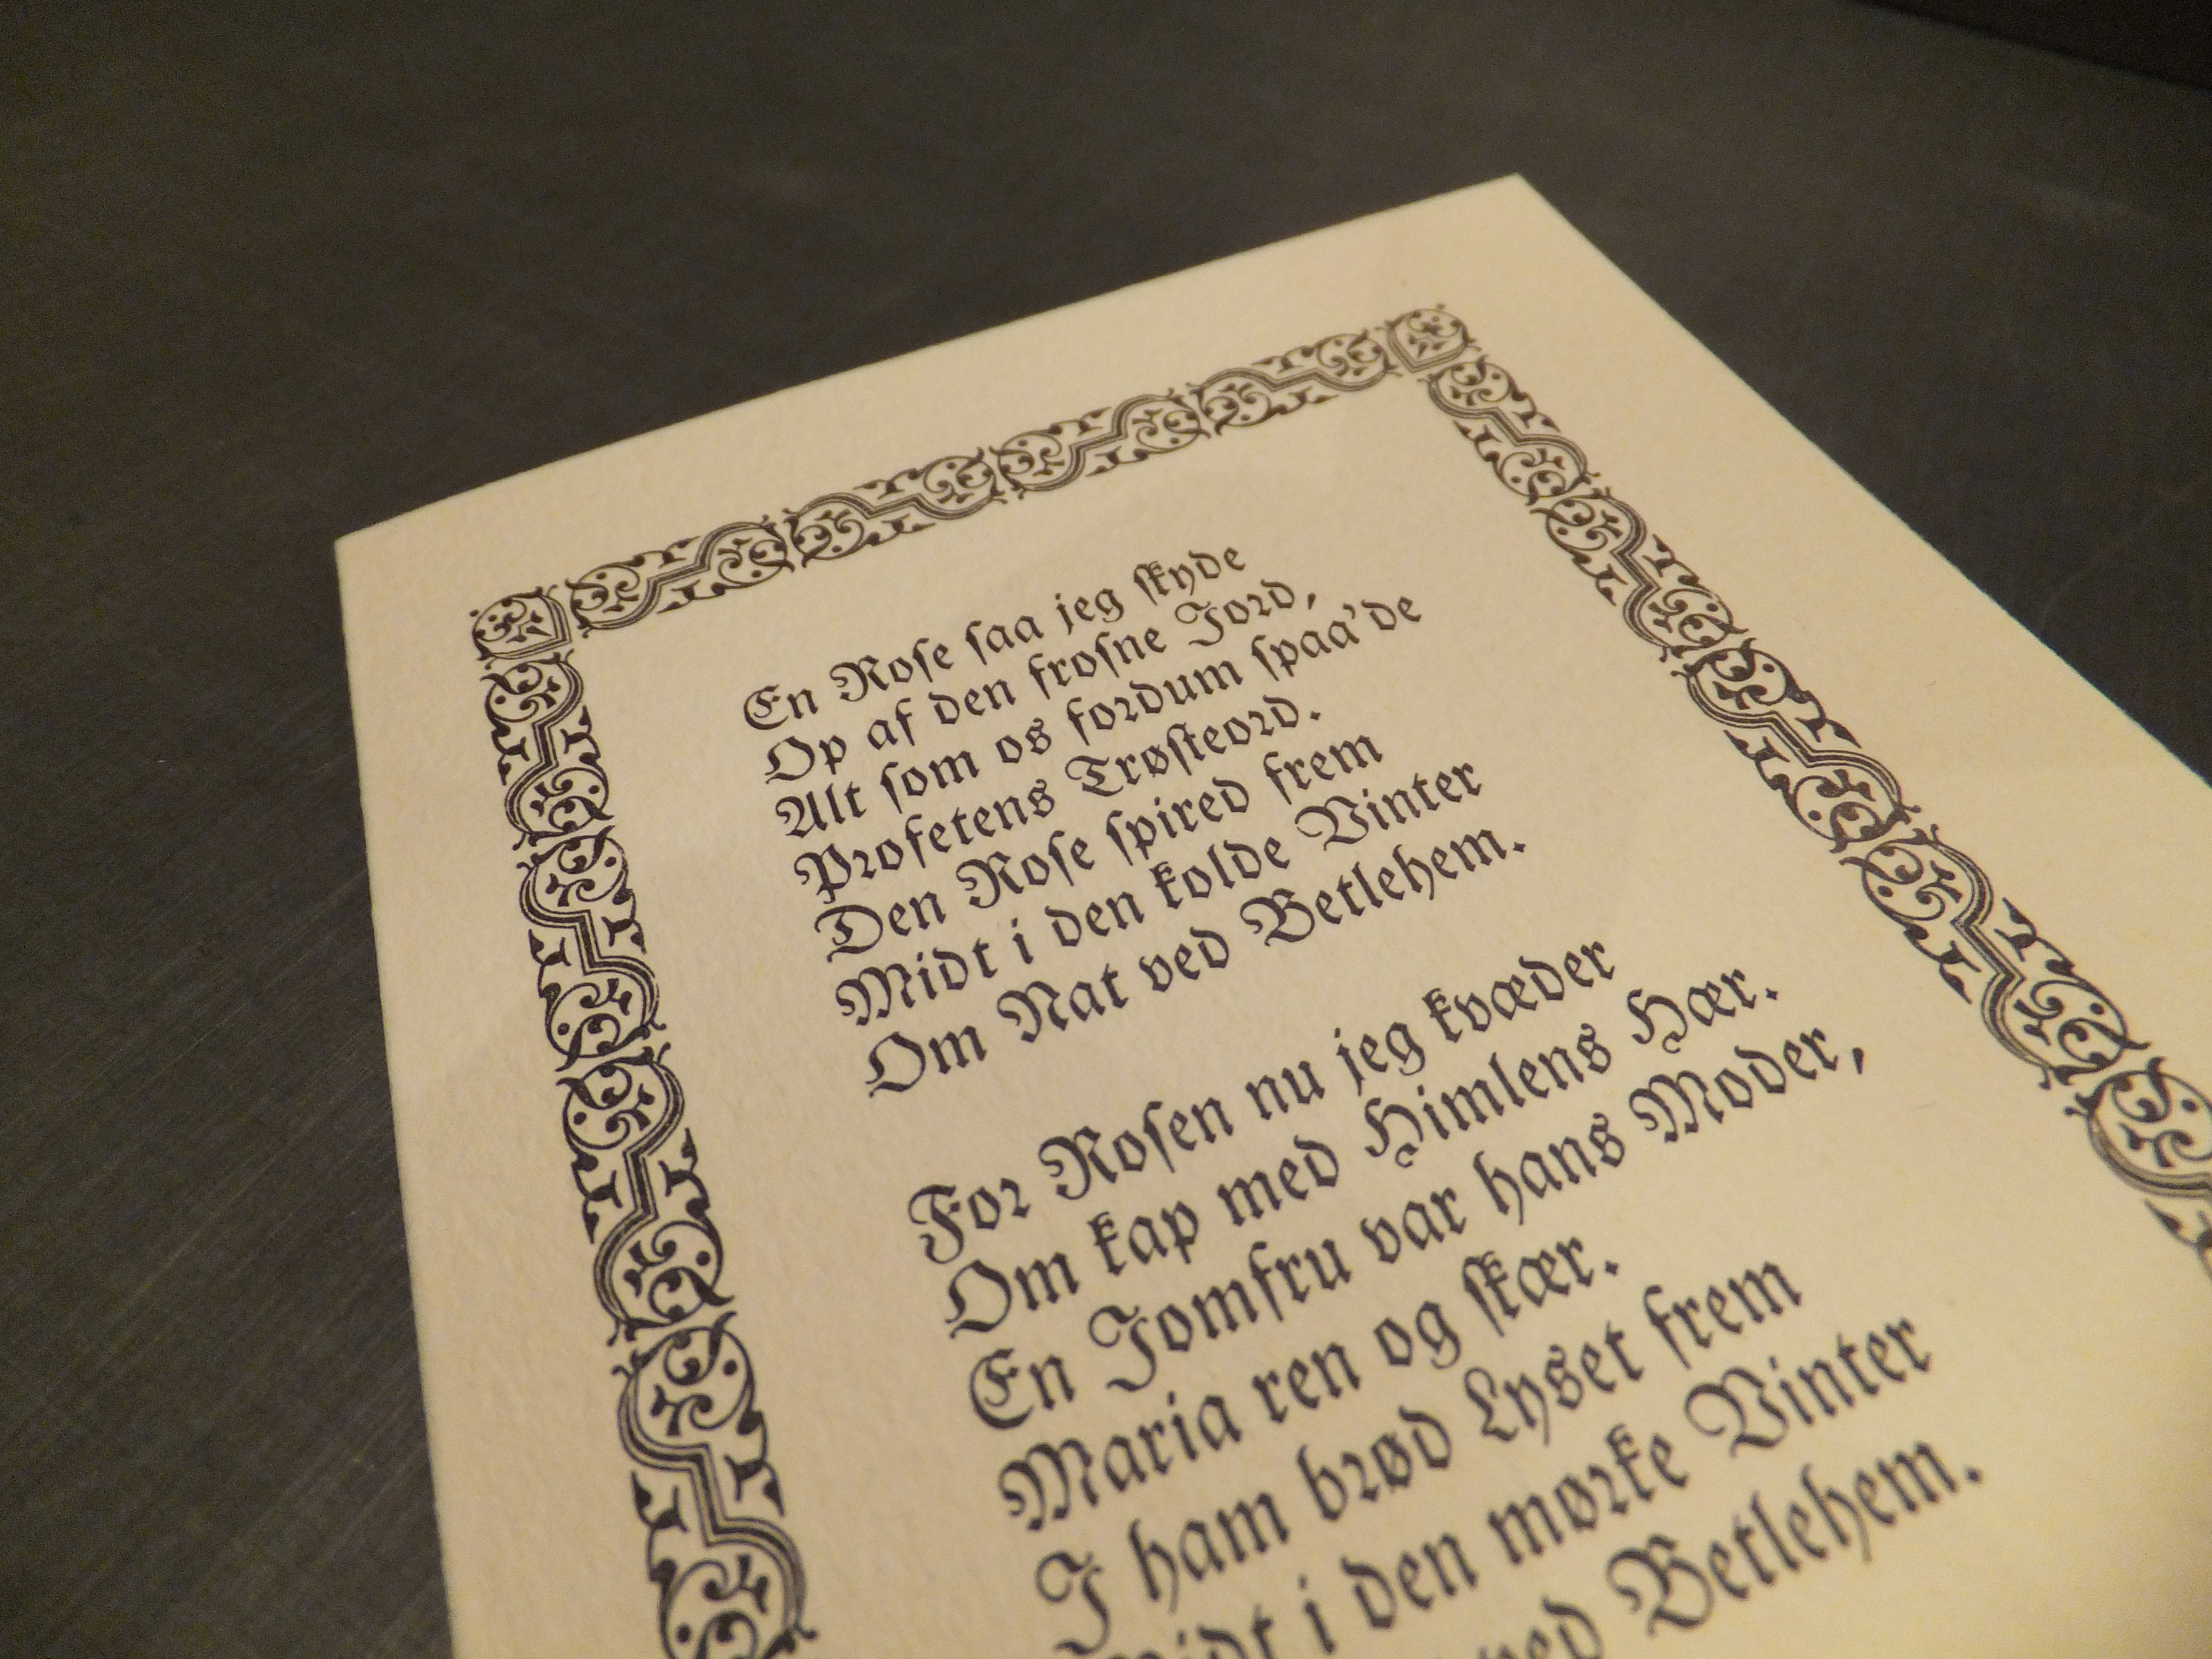 En Roſe ſaa jeg ſkyde
Op af den froſne Jord,
Alt ſom os fordum ſpaa'de
Profetens Trøſteord.
Den Roſe ſpired frem
Midt i den kolde Vinter
Om Nat ved Betlehem.
For Roſen nu jeg kvæder
Om kap med Himlens Hær.
En Jomfru var hans Moder,
Maria ren og ſkær.
I ham brød Lyset frem
Midt i den mørke Vinter
ved Betlehem.